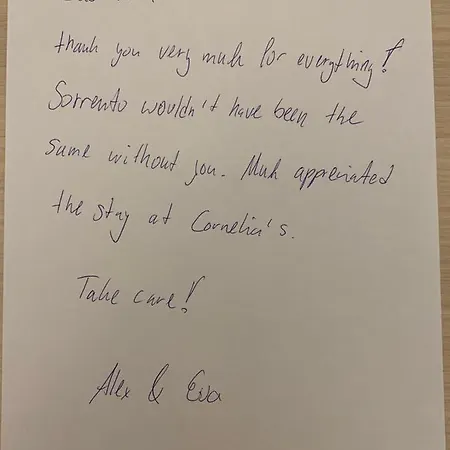 thank you very much for everything!
Sorrento wouldn't have been the
same without you. Much appriciated
the stay at Cornelia's.
Take care!
Alex & Eva